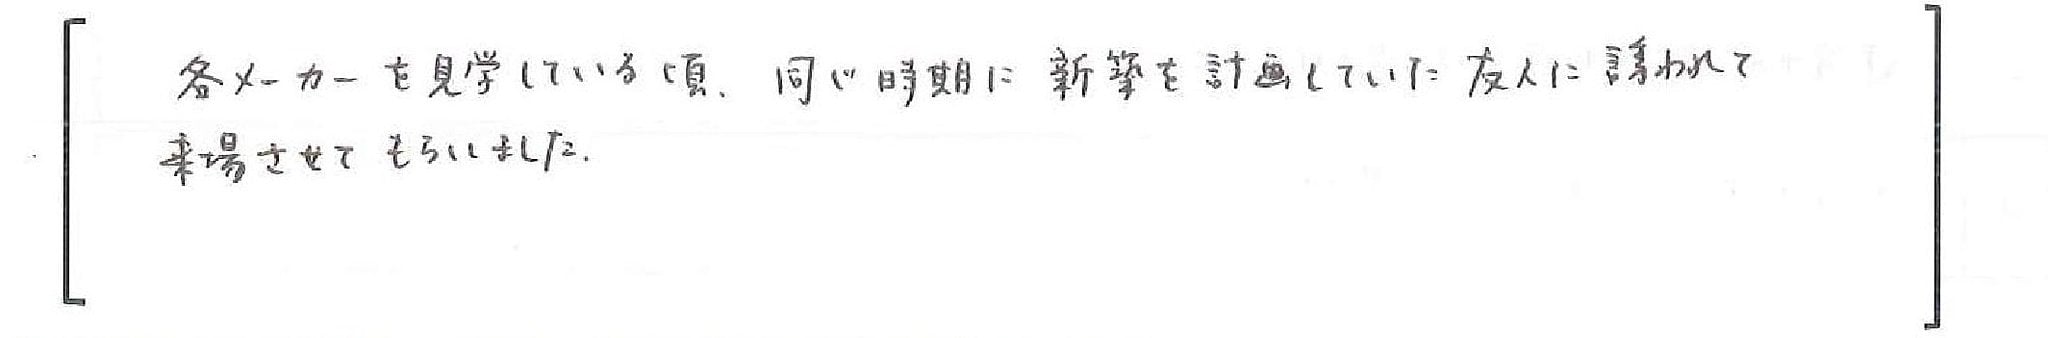 各メーカーを見学している頃、同じ時期に新築を計画していた友人に誘われて
来場させてもらいました.